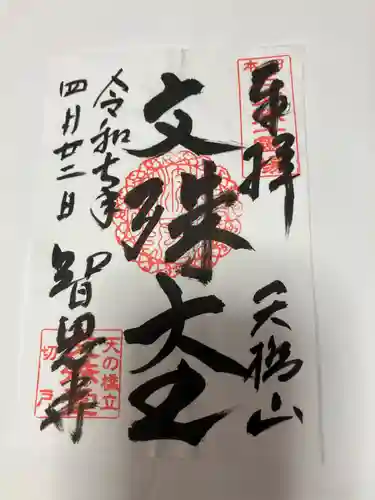 奉拝
天橋山
文殊大士
令和七年
四月廿二日
智恩寺
天の橋立
切戸